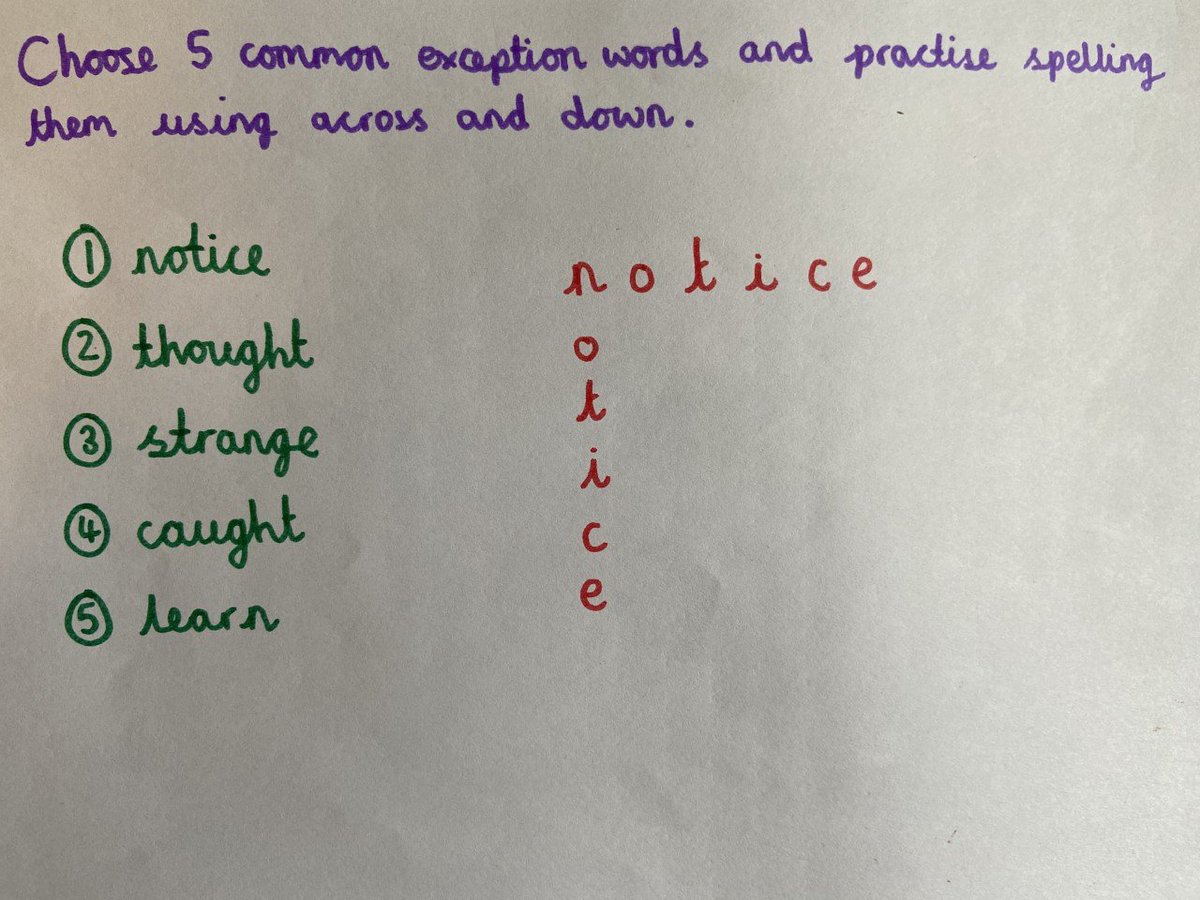 Choose 5 common exception words and practise spelling
them using across and down.
1 notice
2 thought
3 strange
4 caught
5 learn
n o t i c e
o
t
i
c
e